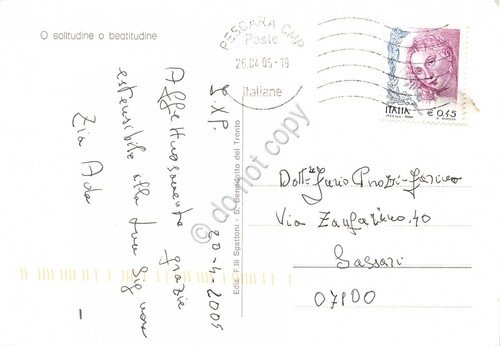 O solitudine o beatitudine
PESCARA CMP
Poste
26.04.05-19
Italiane
ITALIA
€ 0,45
20-4-2005
Affettuosamente grazie
estensibile alla tua Sig.
Zia Ada
Ediz. F.lli Sgattoni - S. Benedetto del Tronto
Via 40
Sassari
07100
do not copy